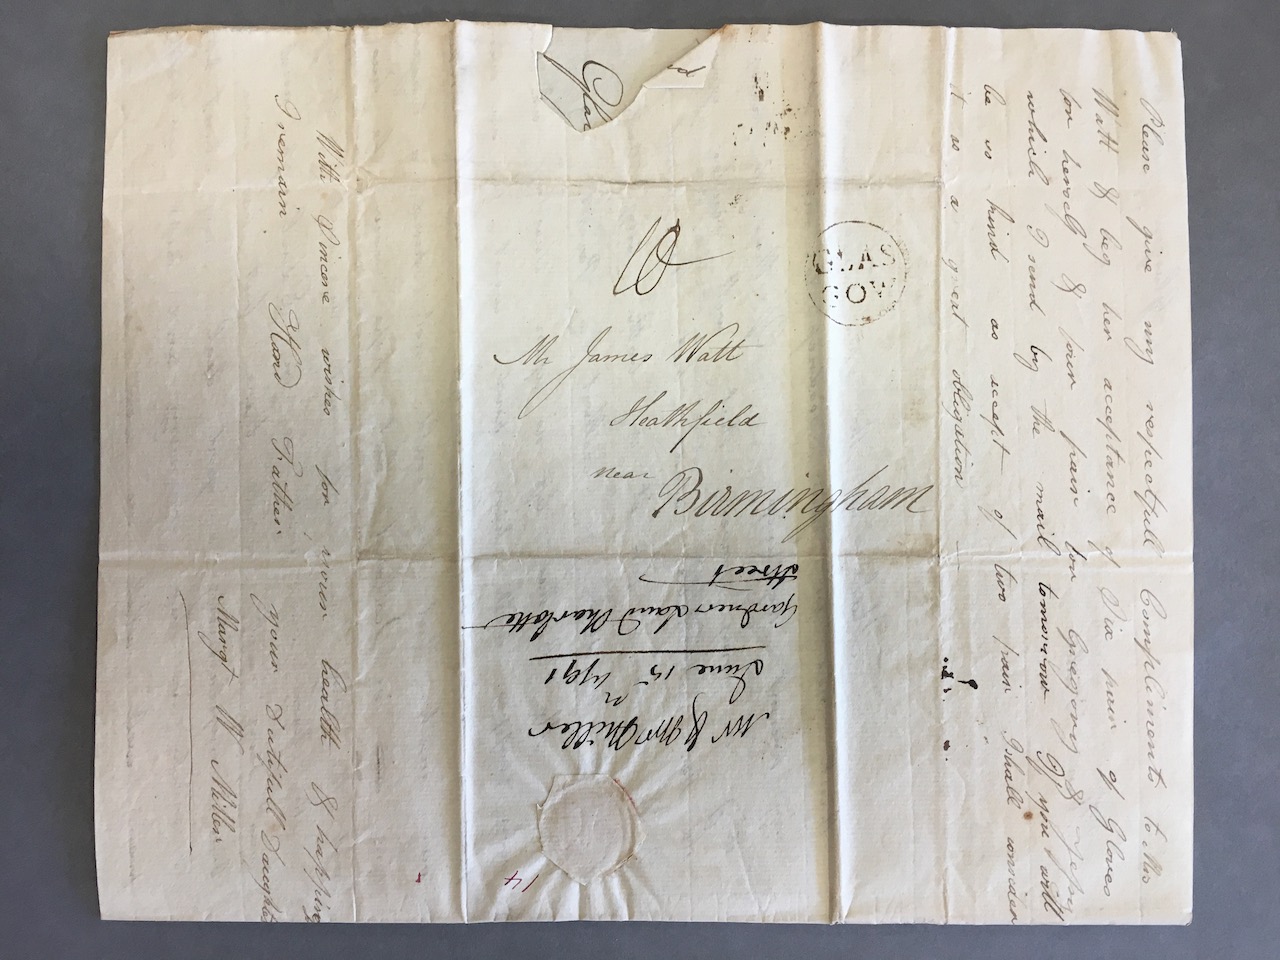 Please give my respectfull Compliments to Mrs
Watt & beg her acceptance of Six pair of Gloves
for herself & four pair for Gregory & Jessy
which I send by the mail tomorrow If you will
be so kind as accept of two pair I shall consider
it as a great obligation
With Sincere wishes for your health & happiness
I remain Hond Father your Dutifull Daughter
Margt W Miller
GLAS
GOW
10
Mr James Watt
Heathfield
near
Birmingham
Mr & Mrs Miller
June 15 1791
Gardners Land Charlotte
Street
14
Gla
ed